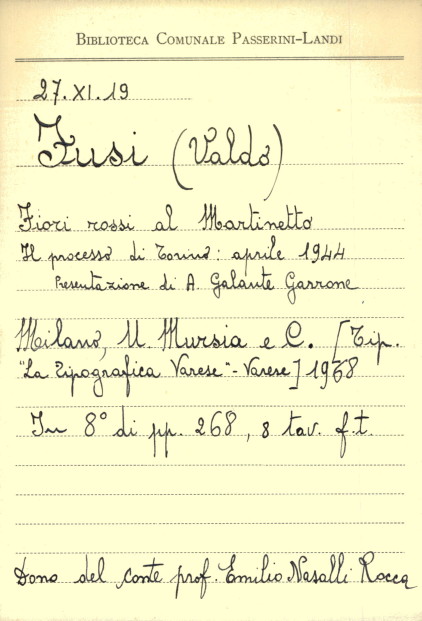 BIBLIOTECA COMUNALE PASSERINI-LANDI
27.XI.19
Fusi (Valdo)
Fiori rossi al Martinetto
Il processo di Torino: aprile 1944
Presentazione di A. Galante Garrone
Milano, U. Mursia e C. [Tip.
"La Tipografica Varese"-Varese] 1968
In 8° di pp. 268, 8 tav. f.t.
Dono del conte prof. Emilio Nasalli Rocca